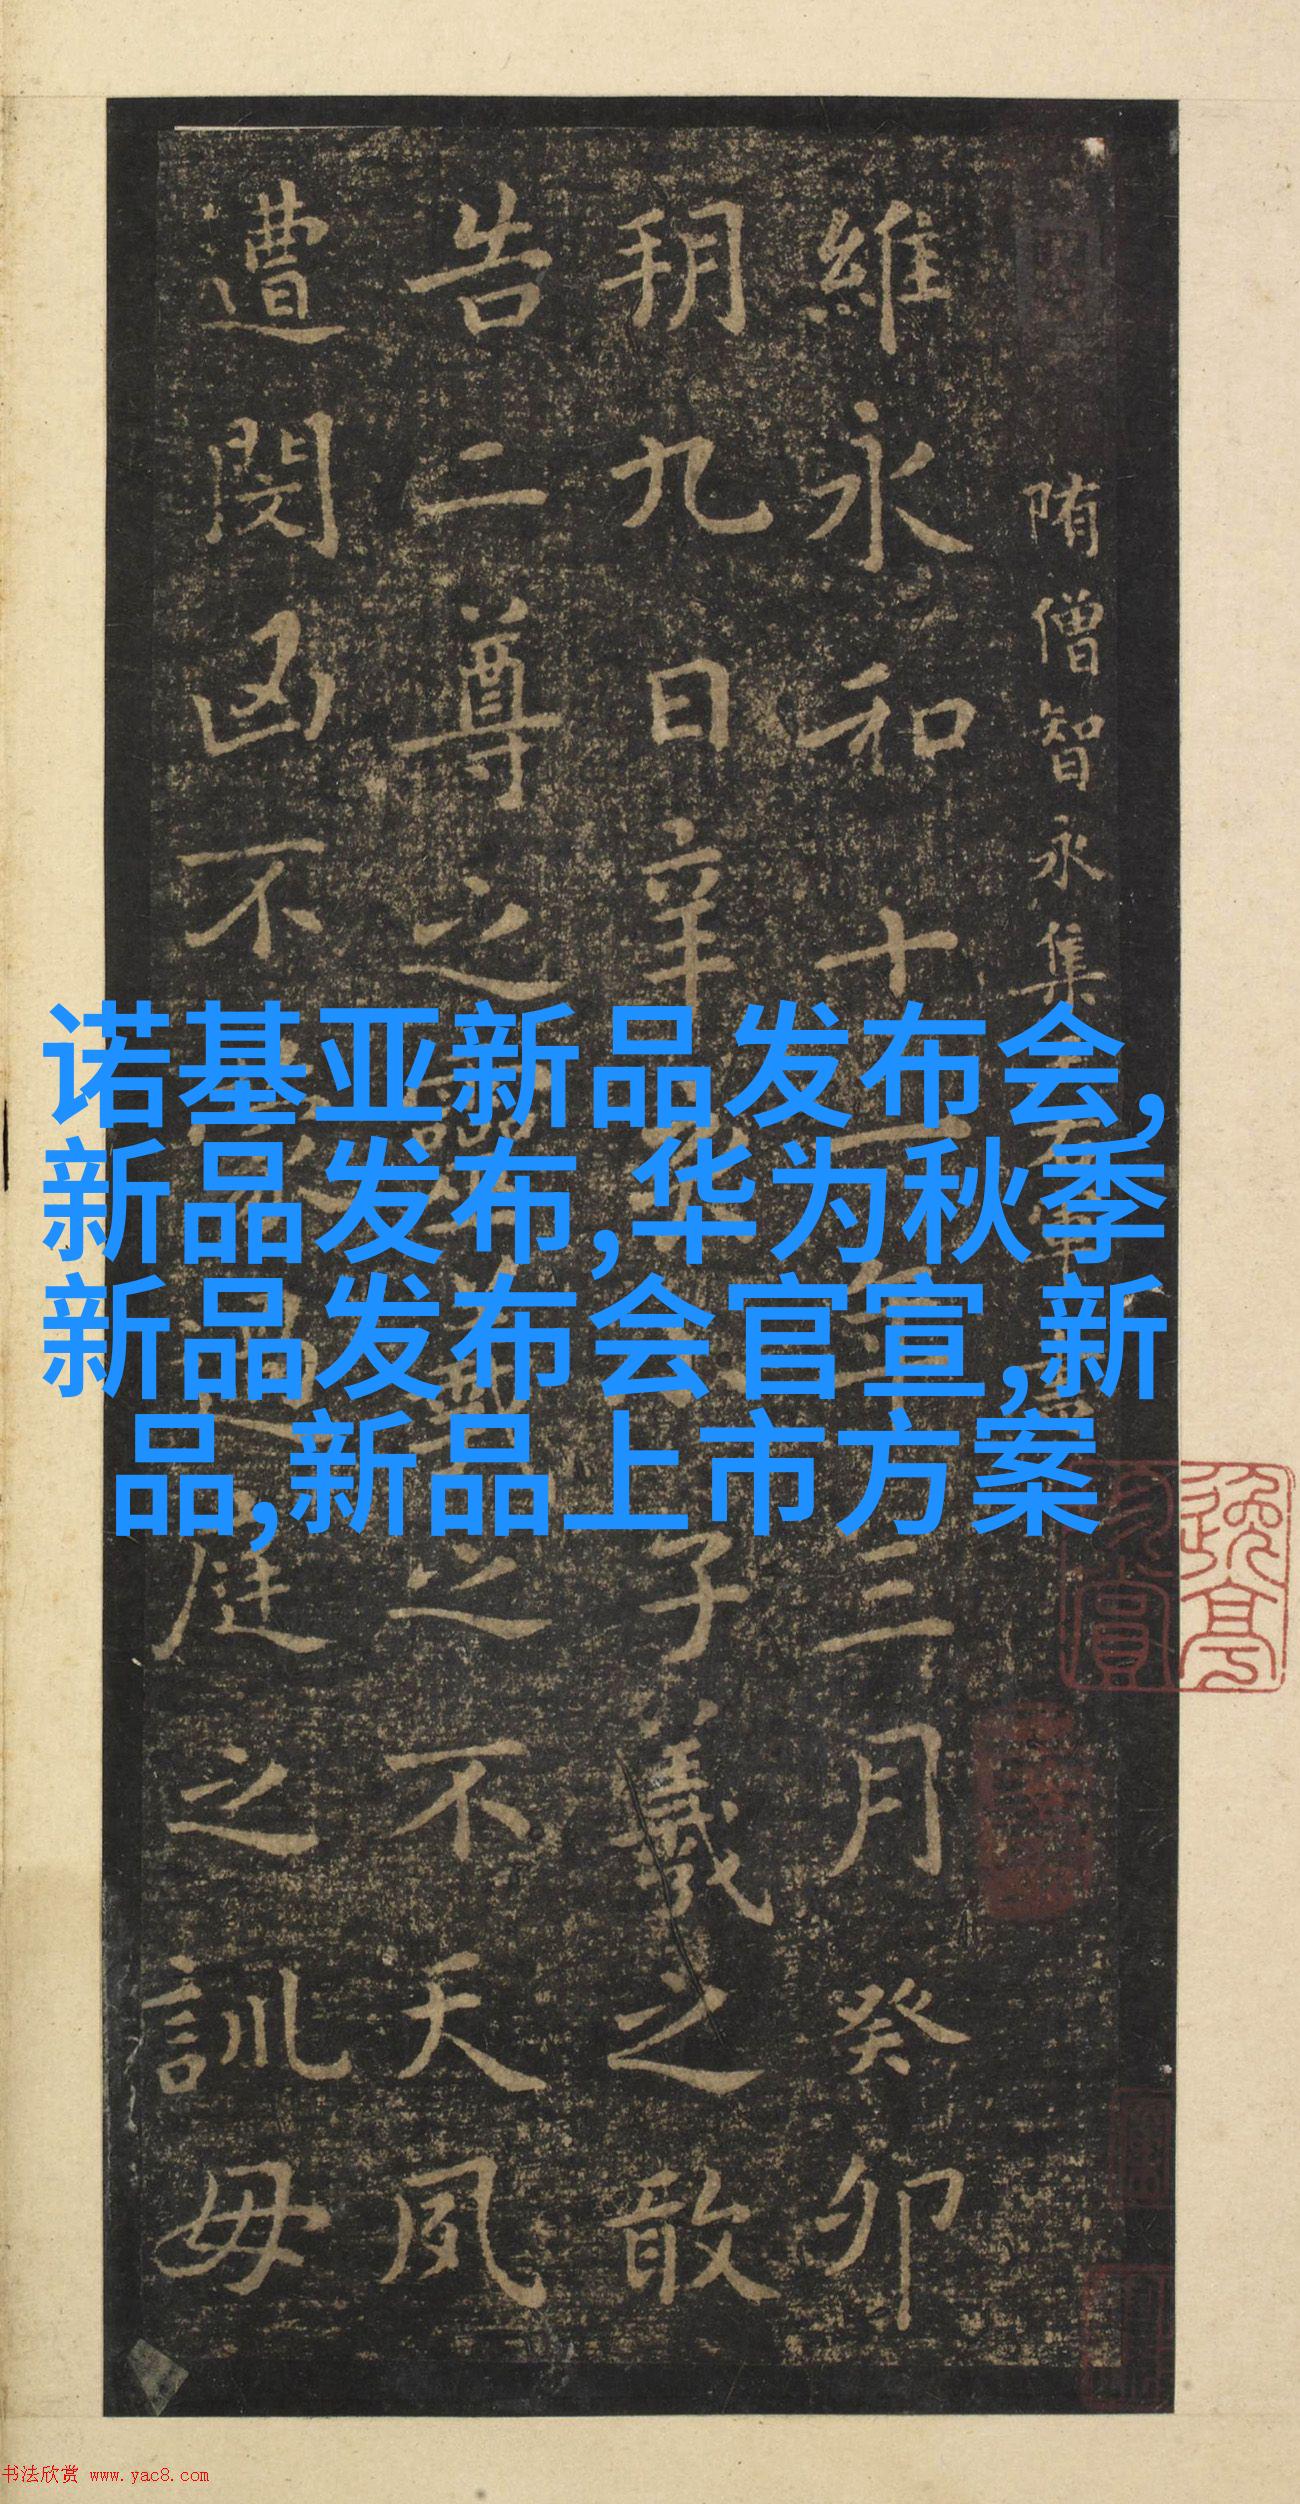 隋僧智永集
維永和十一年三月癸卯
朔九日辛亥小子羲之敢
告二尊之靈羲之不天夙
遭閔凶不蒙過庭之訓母
诺基亚新品发布会,
新品发布,华为秋季
新品发布会官宣,新
品,新品上市方案
书法欣赏 www.yac8.com